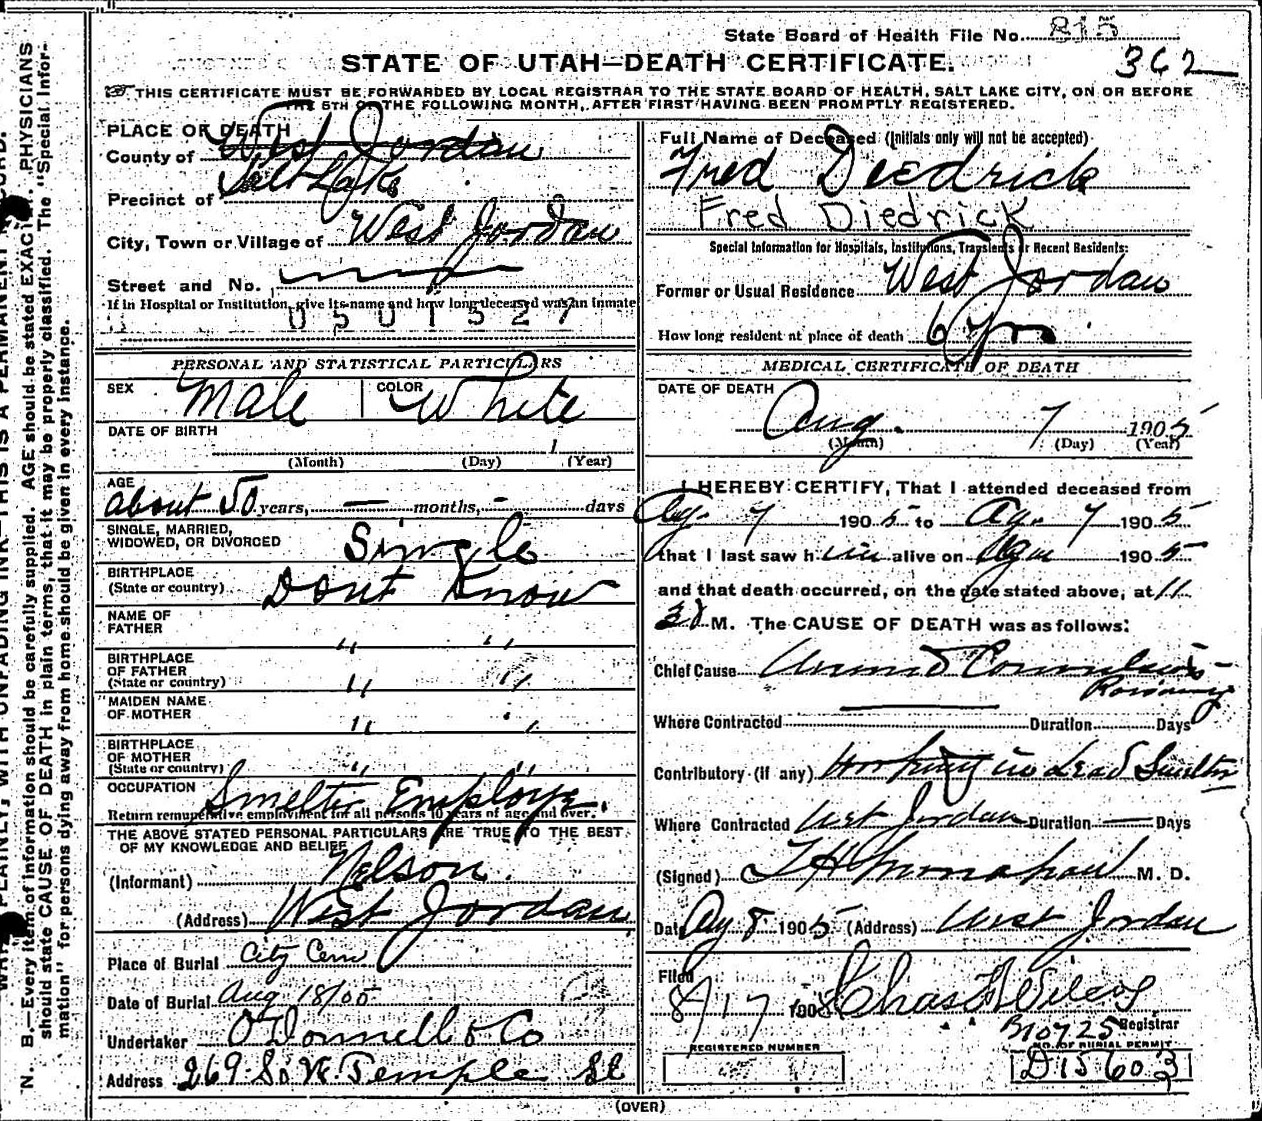 State Board of Health File No. 815
362
STATE OF UTAH—DEATH CERTIFICATE.
THIS CERTIFICATE MUST BE FORWARDED BY LOCAL REGISTRAR TO THE STATE BOARD OF HEALTH, SALT LAKE CITY, ON OR BEFORE
THE 5TH OF THE FOLLOWING MONTH, AFTER FIRST HAVING BEEN PROMPTLY REGISTERED.
PLACE OF DEATH
County of West Jordan
Salt Lake
Precinct of
City, Town or Village of West Jordan
Street and No.
If in Hospital or Institution, give its name and how long deceased was an inmate
0501527
PERSONAL AND STATISTICAL PARTICULARS
SEX Male COLOR White
DATE OF BIRTH
1
(Month) (Day) (Year)
AGE
about 50 years, — months, - days
SINGLE, MARRIED,
WIDOWED, OR DIVORCED Single
BIRTHPLACE
(State or country) Dont Know
NAME OF
FATHER " "
BIRTHPLACE
OF FATHER
(State or country) " "
MAIDEN NAME
OF MOTHER " "
BIRTHPLACE
OF MOTHER
(State or country) " "
OCCUPATION Smelter Employe.
Return remunerative employment for all persons 10 years of age and over.
THE ABOVE STATED PERSONAL PARTICULARS ARE TRUE TO THE BEST
OF MY KNOWLEDGE AND BELIEF
(Informant) Nelson.
(Address) West Jordan
Place of Burial City Cem
Date of Burial Aug 18/05
Undertaker O'Donnell & Co
Address 269 So W. Temple St
Full Name of Deceased (Initials only will not be accepted)
Fred Deedrick
Fred Diedrick
Special Information for Hospitals, Institutions, Transients or Recent Residents:
Former or Usual Residence West Jordan
How long resident at place of death 6 yrs
MEDICAL CERTIFICATE OF DEATH
DATE OF DEATH
Aug. 7 1905
(Month) (Day) (Year)
I HEREBY CERTIFY, That I attended deceased from
Ag. 7 1905 to Ag. 7 1905
that I last saw him alive on 1905
and that death occurred, on the date stated above, at 11
30 M. The CAUSE OF DEATH was as follows:
Chief Cause Convulsions
Where Contracted Duration Days
Contributory (if any) Working in Lead Smelter
Where Contracted West Jordan Duration — Days
(Signed) M. D.
Date Aug 8 1905 (Address) West Jordan
Filed
8/17 190 Chas
B10725 Registrar
REGISTERED NUMBER
NO. OF BURIAL PERMIT
D15603
(OVER)
N. B.—Every item of information should be carefully supplied. AGE should be stated EXACTLY. PHYSICIANS
should state CAUSE OF DEATH in plain terms, that it may be properly classified. The "Special Infor-
mation" for persons dying away from home should be given in every instance.
PLAINLY, WITH UNFADING INK—THIS IS A PERMANENT RECORD.